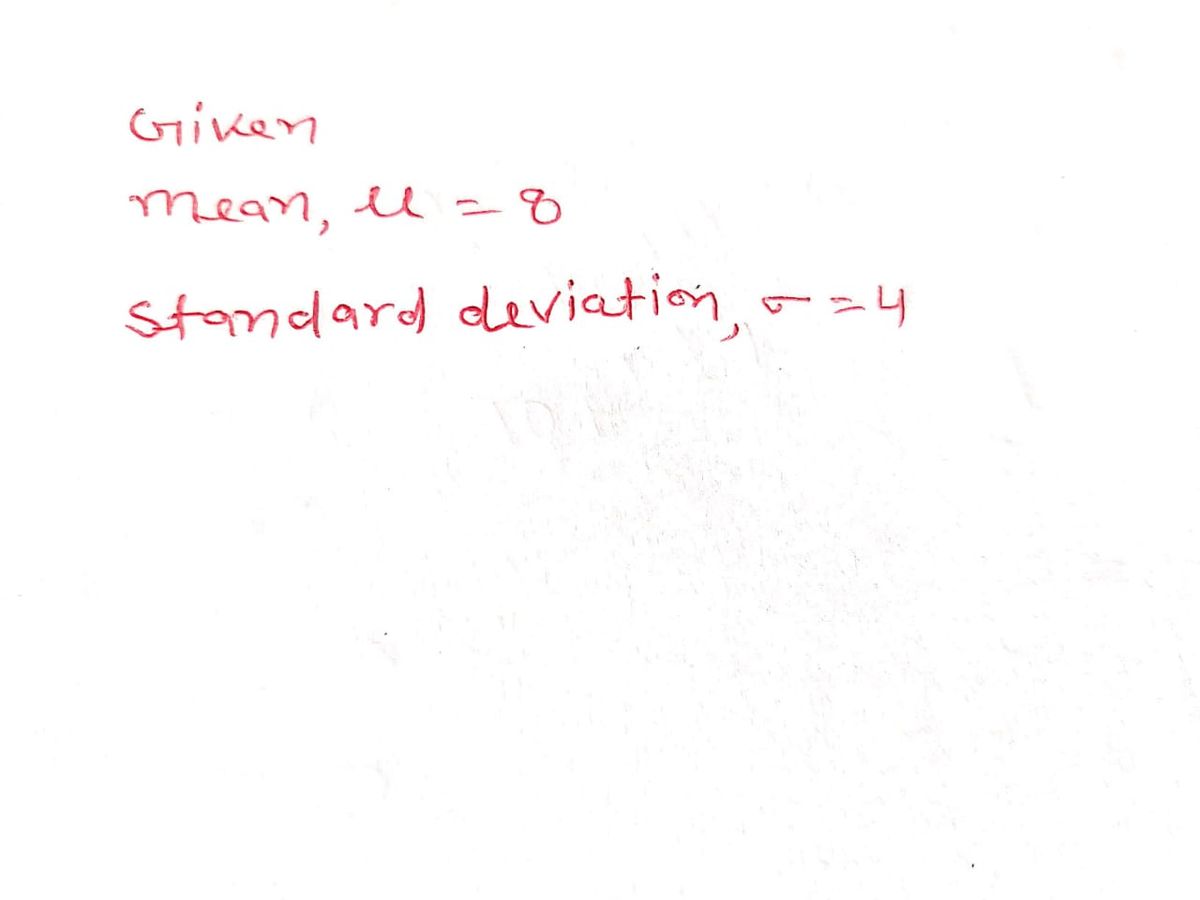 Given
mean, μ = 8
standard deviation, σ = 4